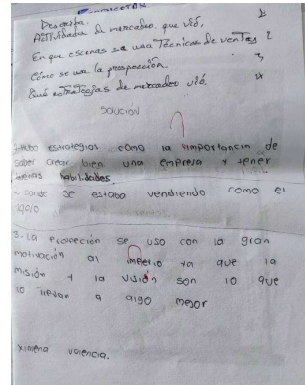 Describa.
Actividades de mercadeo. que vió, 1
En que escenas se usa Técnicas de ventas 2
Cómo se usa la prospección. 3
Qué estrategias de mercadeo vió. 4
Solución
estrategias como la importancia de
saber crear bien una empresa y tener
buenas habilidades.
- Donde se estaba vendiendo como el
3. La proyección se uso con la gran
motivación al imperio ya que la
misión y la visión son lo que
lo a algo mejor
Ximena valencia.